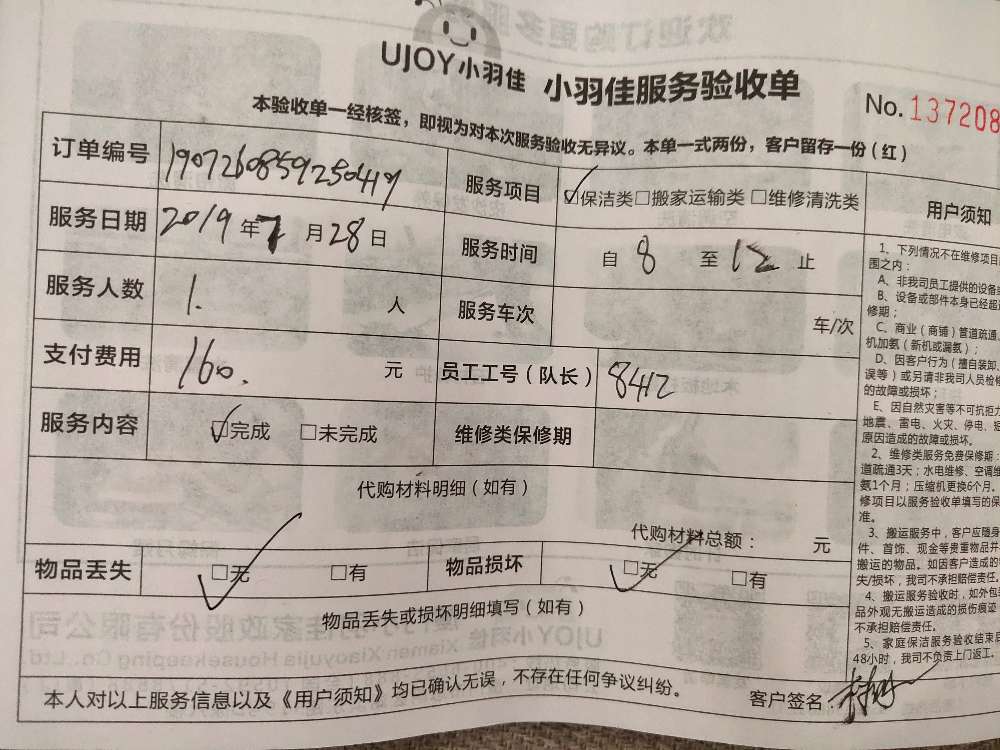 UJOY小羽佳 小羽佳服务验收单
No. 137208
本验收单一经核签，即视为对本次服务验收无异议。本单一式两份，客户留存一份（红）
订单编号 1907260859250419 服务项目 ☑保洁类 □搬家运输类 □维修清洗类
服务日期 2019年7月28日 服务时间 自 8 至 12 止
服务人数 1. 人 服务车次 车/次
支付费用 160. 元 员工工号（队长） 8412
服务内容 ☑完成 □未完成 维修类保修期
代购材料明细（如有）
代购材料总额： 元
物品丢失 ☑无 □有 物品损坏 ☑无 □有
物品丢失或损坏明细填写（如有）
本人对以上服务信息以及《用户须知》均已确认无误，不存在任何争议纠纷。 客户签名：
用户须知
1、下列情况不在维修项目
围之内：
A、非我司员工提供的设备
B、设备或部件本身已经超
修期；
C、商业（商铺）管道疏通、
机加氨（新机或漏氨）；
D、因客户行为（擅自装卸、
误等）或另请非我司人员检修
的故障或损坏；
E、因自然灾害等不可抗拒力
地震、雷电、火灾、停电、短
原因造成的故障或损坏。
2、维修类服务免费保修期：
道疏通3天；水电维修、空调维
氨1个月；压缩机更换6个月。
修项目以服务验收单填写的保
准。
3、搬运服务中，客户应随身
件、首饰、现金等贵重物品并
搬运的物品。如因客户造成的
失/损坏，我司不承担赔偿责任。
4、搬运服务验收时，如外包
品外观无搬运造成的损伤痕迹
不承担赔偿责任。
5、家庭保洁服务验收结束后
48小时，我司不负责上门返工。